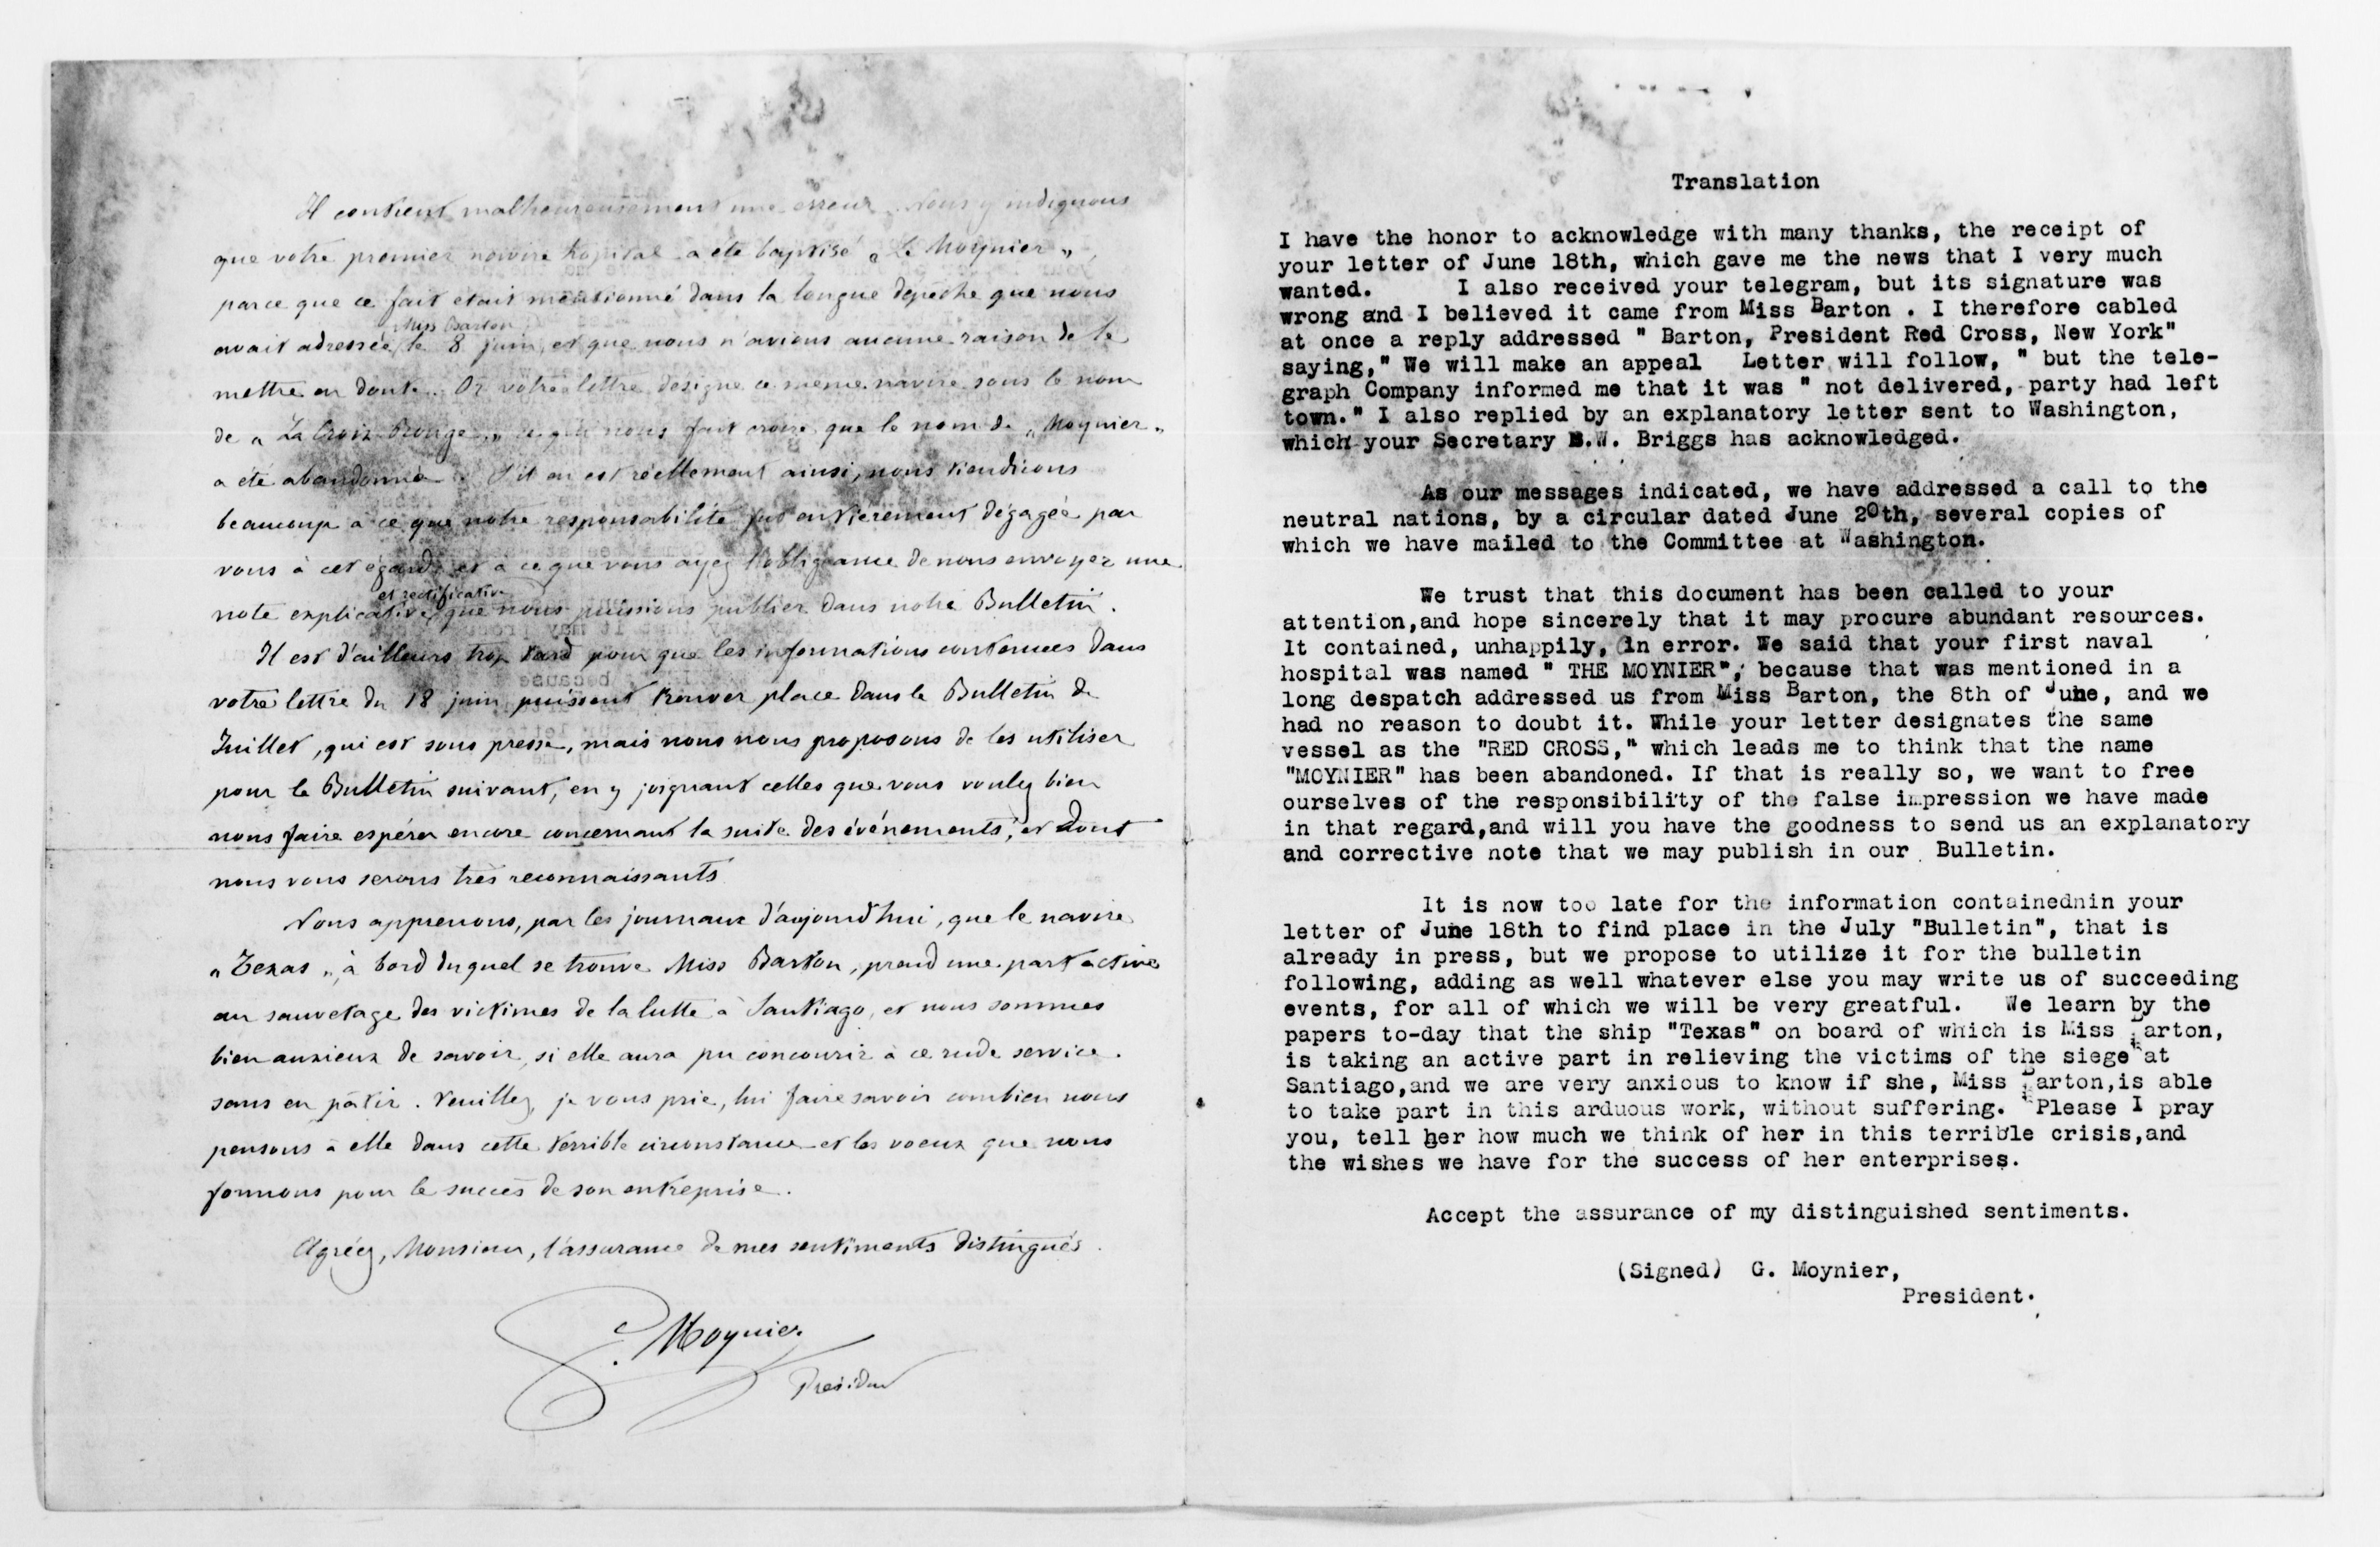 Il contient malheureusement une erreur. Nous y indiquons
que votre premier navire hôpital a été baptisé „ Le Moynier „,
parce que ce fait était mentionné dans la longue dépêche que nous
avait adressée Miss Barton le 8 juin, et que nous n'avions aucune raison de le
mettre en doute. Or votre lettre désigne ce même navire sous le nom
de „ La Croix Rouge „ ce qui nous fait croire que le nom de „ Moynier „
a été abandonné. S'il en est réellement ainsi, nous tiendrions
beaucoup à ce que notre responsabilité fut entièrement dégagée par
vous à cet égard, et à ce que vous ayez l'obligeance de nous envoyer une
note explicative et rectificative que nous puissions publier dans notre Bulletin.
Il est d'ailleurs trop tard pour que les informations contenues dans
votre lettre du 18 juin puissent trouver place dans le Bulletin de
Juillet, qui est sous presse, mais nous nous proposons de les utiliser
pour le Bulletin suivant, en y joignant celles que vous voulez bien
nous faire espérer encore concernant la suite des événements, et dont
nous vous serons très reconnaissants
Nous apprenons, par les journaux d'aujourd'hui, que le navire
„ Texas „, à bord duquel se trouve Miss Barton, prend une part active
au sauvetage des victimes de la lutte à Santiago, et nous sommes
bien anxieux de savoir, si elle aura pu concourir à ce rude service.
sans en pâtir. Veuillez, je vous prie, lui faire savoir combien nous
pensons à elle dans cette terrible circonstance et les voeux que nous
formons pour le succès de son entreprise.
Agréez, Monsieur, l'assurance de mes sentiments distingués.
G. Moynier
Président
Translation
I have the honor to acknowledge with many thanks, the receipt of
your letter of June 18th, which gave me the news that I very much
wanted. I also received your telegram, but its signature was
wrong and I believed it came from Miss Barton . I therefore cabled
at once a reply addressed " Barton, President Red Cross, New York"
saying," We will make an appeal Letter will follow, " but the tele-
graph Company informed me that it was " not delivered, party had left
town." I also replied by an explanatory letter sent to Washington,
which your Secretary B.W. Briggs has acknowledged.
As our messages indicated, we have addressed a call to the
neutral nations, by a circular dated June 20th, several copies of
which we have mailed to the Committee at Washington.
We trust that this document has been called to your
attention,and hope sincerely that it may procure abundant resources.
It contained, unhappily, in error. We said that your first naval
hospital was named " THE MOYNIER", because that was mentioned in a
long despatch addressed us from Miss Barton, the 8th of June, and we
had no reason to doubt it. While your letter designates the same
vessel as the "RED CROSS," which leads me to think that the name
"MOYNIER" has been abandoned. If that is really so, we want to free
ourselves of the responsibility of the false impression we have made
in that regard,and will you have the goodness to send us an explanatory
and corrective note that we may publish in our Bulletin.
It is now too late for the information containednin your
letter of June 18th to find place in the July "Bulletin", that is
already in press, but we propose to utilize it for the bulletin
following, adding as well whatever else you may write us of succeeding
events, for all of which we will be very greatful. We learn by the
papers to-day that the ship "Texas" on board of which is Miss Barton,
is taking an active part in relieving the victims of the siege at
Santiago,and we are very anxious to know if she, Miss Barton,is able
to take part in this arduous work, without suffering. Please I pray
you, tell her how much we think of her in this terrible crisis,and
the wishes we have for the success of her enterprises.
Accept the assurance of my distinguished sentiments.
(Signed) G. Moynier,
President.